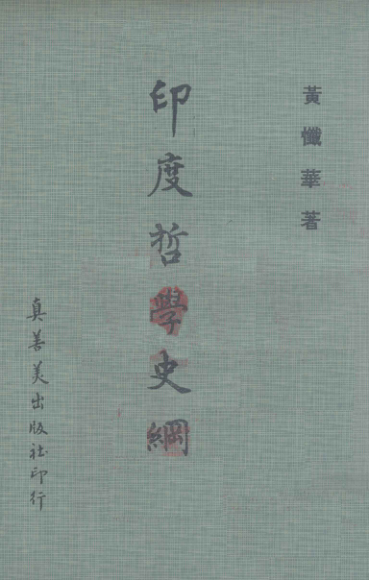 黃懺華著
印度哲學史綱
真善美出版社印行